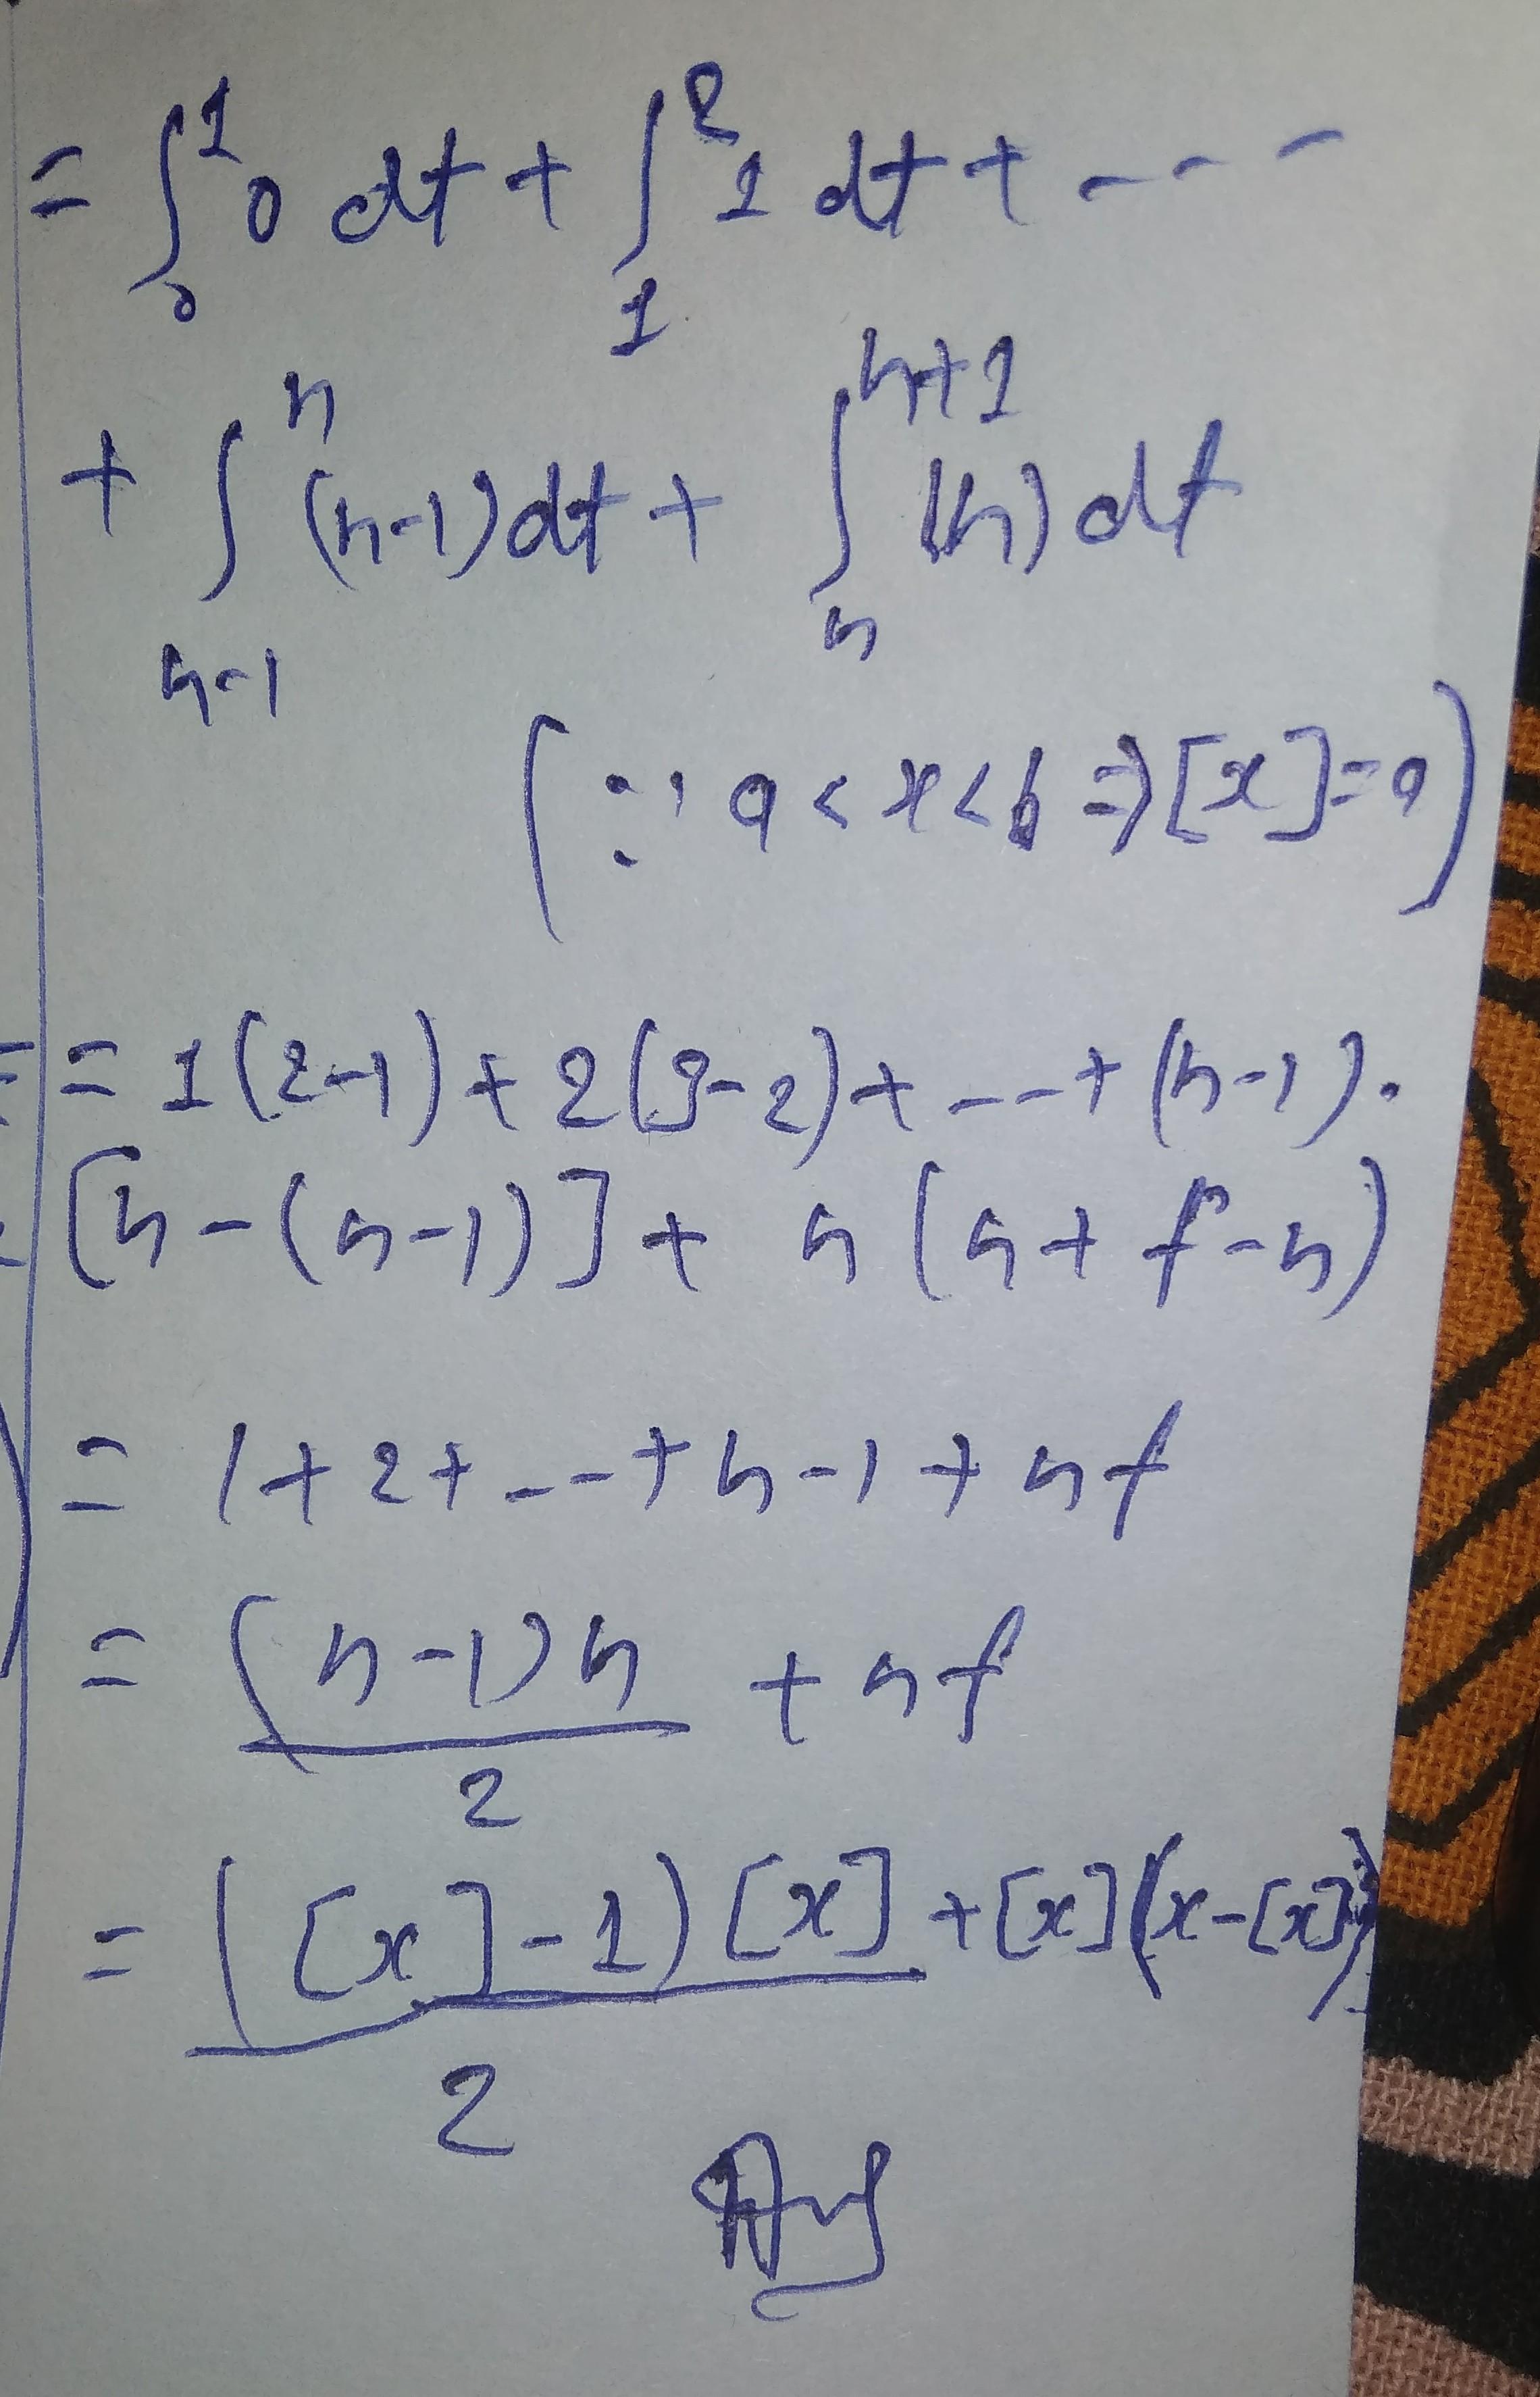 = ∫₀¹ 0 dt + ∫₁² 1 dt + - - -
+ ∫ₙ₋₁ⁿ (n-1) dt + ∫ₙⁿ⁺¹ (n) dt
(∵ a < x < b ⇒ [x] = a)
= 1(2-1) + 2(3-2) + --- + (n-1).
[n - (n-1)] + n (n + f - n)
= 1 + 2 + --- + n-1 + nf
= (n-1)n/2 + nf
= ([x]-1)[x]/2 + [x](x-[x])
Ans